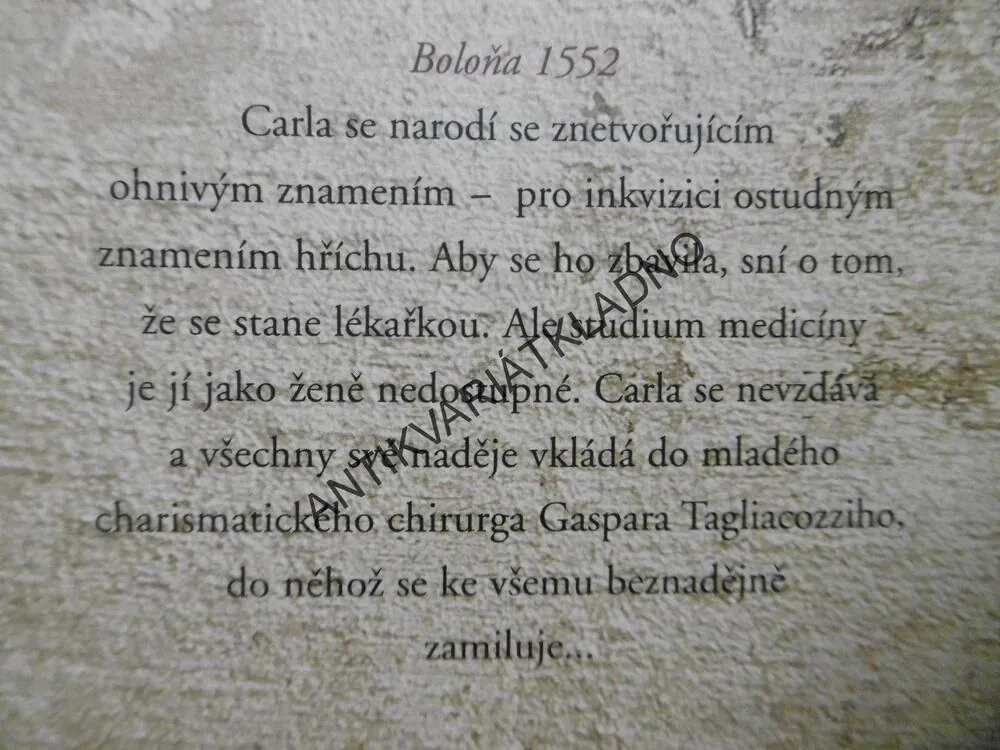 Boloňa 1552
Carla se narodí se znetvořujícím
ohnivým znamením – pro inkvizici ostudným
znamením hříchu. Aby se ho zbavila, sní o tom,
že se stane lékařkou. Ale studium medicíny
je jí jako ženě nedostupné. Carla se nevzdává
a všechny své naděje vkládá do mladého
charismatického chirurga Gaspara Tagliacozziho,
do něhož se ke všemu beznadějně
zamiluje...
ANTIKVARIÁTKLADNO